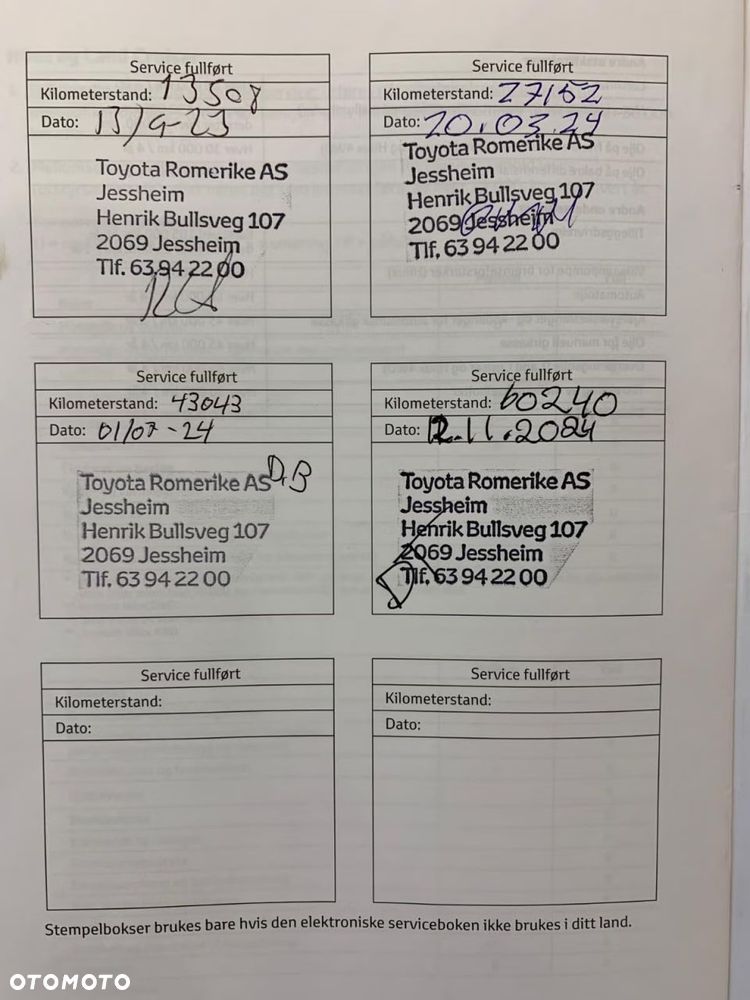 Service fullført
Kilometerstand: 13508
Dato: 13/9-23
Toyota Romerike AS
Jessheim
Henrik Bullsveg 107
2069 Jessheim
Tlf. 63 94 22 00
Service fullført
Kilometerstand: 27152
Dato: 20.03.24
Toyota Romerike AS
Jessheim
Henrik Bullsveg 107
2069 Jessheim
Tlf. 63 94 22 00
Service fullført
Kilometerstand: 43043
Dato: 01/07-24
D.B
Toyota Romerike AS
Jessheim
Henrik Bullsveg 107
2069 Jessheim
Tlf. 63 94 22 00
Service fullført
Kilometerstand: 60240
Dato: 12.11.2024
Toyota Romerike AS
Jessheim
Henrik Bullsveg 107
2069 Jessheim
Tlf. 63 94 22 00
Service fullført
Kilometerstand:
Dato:
Service fullført
Kilometerstand:
Dato:
Stempelbokser brukes bare hvis den elektroniske serviceboken ikke brukes i ditt land.
OTOMOTO